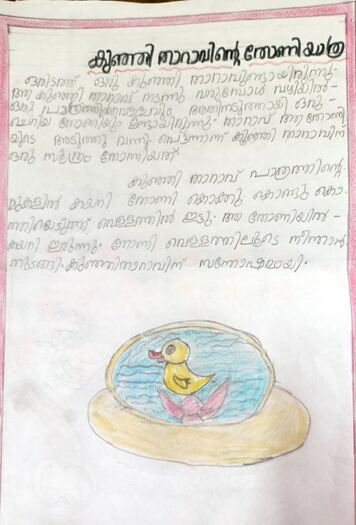 കുഞ്ഞി താറാവിന്റെ തോണിയാത്ര
ഒരിടത്ത് ഒരു കുഞ്ഞി താറാവുണ്ടായിരുന്നു.
ആ കുഞ്ഞി താറാവ് നടന്നു വരുമ്പോൾ വഴിയിൽ -
ഒരു പാത്രത്തിൽ വെള്ളവും അതിനടുത്തായി ഒരു -
ചെറിയ തോണിയും ഉണ്ടായിരുന്നു. താറാവ് ആ തോണി
യുടെ അടുത്തു വന്നു. പെട്ടന്നാണ് കുഞ്ഞി താറാവിന്
ഒരു സൂത്രം തോന്നിയത്.
കുഞ്ഞി താറാവ് പാത്രത്തിന്റെ
മുകളിൽ കയറി തോണി കൊക്കു കൊണ്ടു കൊ-
ത്തിയെടുത്ത് വെള്ളത്തിൽ ഇട്ടു. ആ തോണിയിൽ -
കയറി ഇരുന്നു. തോണി വെള്ളത്തിലൂടെ നീന്താൻ
തുടങ്ങി. കുഞ്ഞിതാറാവിന് സന്തോഷമായി.